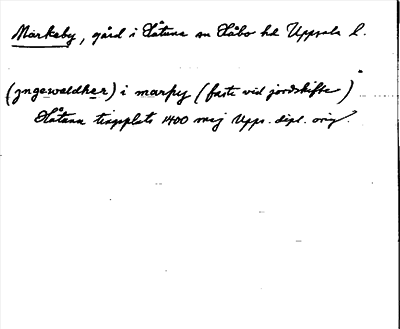 Markeby, gård i Håtuna sn Håbo hd Uppsala l.
(yngewaldher) i marpy (faste vid jordskifte)
Håtuna tingplats 1400 maj Upps. dipl. orig.